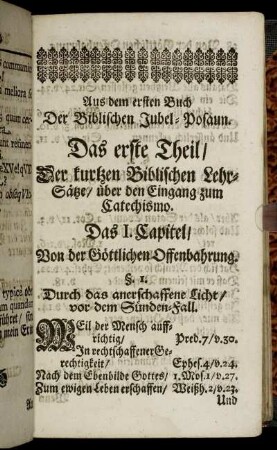 Aus dem ersten Buch
Der Biblischen Jubel-Posaun.
Das erste Theil/
Der kurtzen Biblischen Lehr-
Sätze/ über den Eingang zum
Catechismo.
Das I. Capitel/
Von der Göttlichen Offenbahrung.
§. I.
Durch das anerschaffene Licht/
vor dem Sünden-Fall.
WEil der Mensch auff-
richtig/ Pred. 7/ v. 30.
In rechtschaffener Ge-
rechtigkeit/ Ephes. 4/ v. 24.
Nach dem Ebenbilde Gottes/ 1. Mos. 1/ v. 27.
Zum ewigen Leben erschaffen/ Weißh. 2/ v. 23.
Und